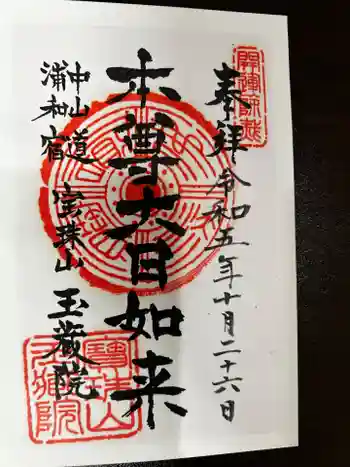 奉拝 令和五年十月二十六日
本尊大日如来
中山道
浦和宿
宝珠山 玉蔵院